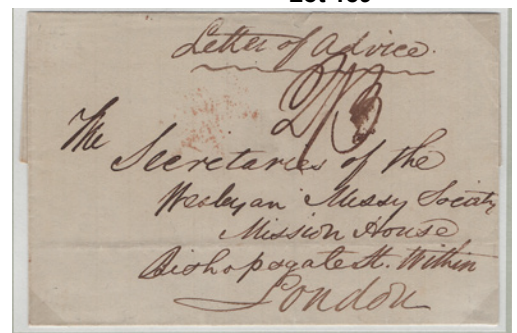 Letter of Advice.
2/3
The
Secretaries of the
Wesleyan Missy Society
Mission House
Bishopsgate St. Within
London